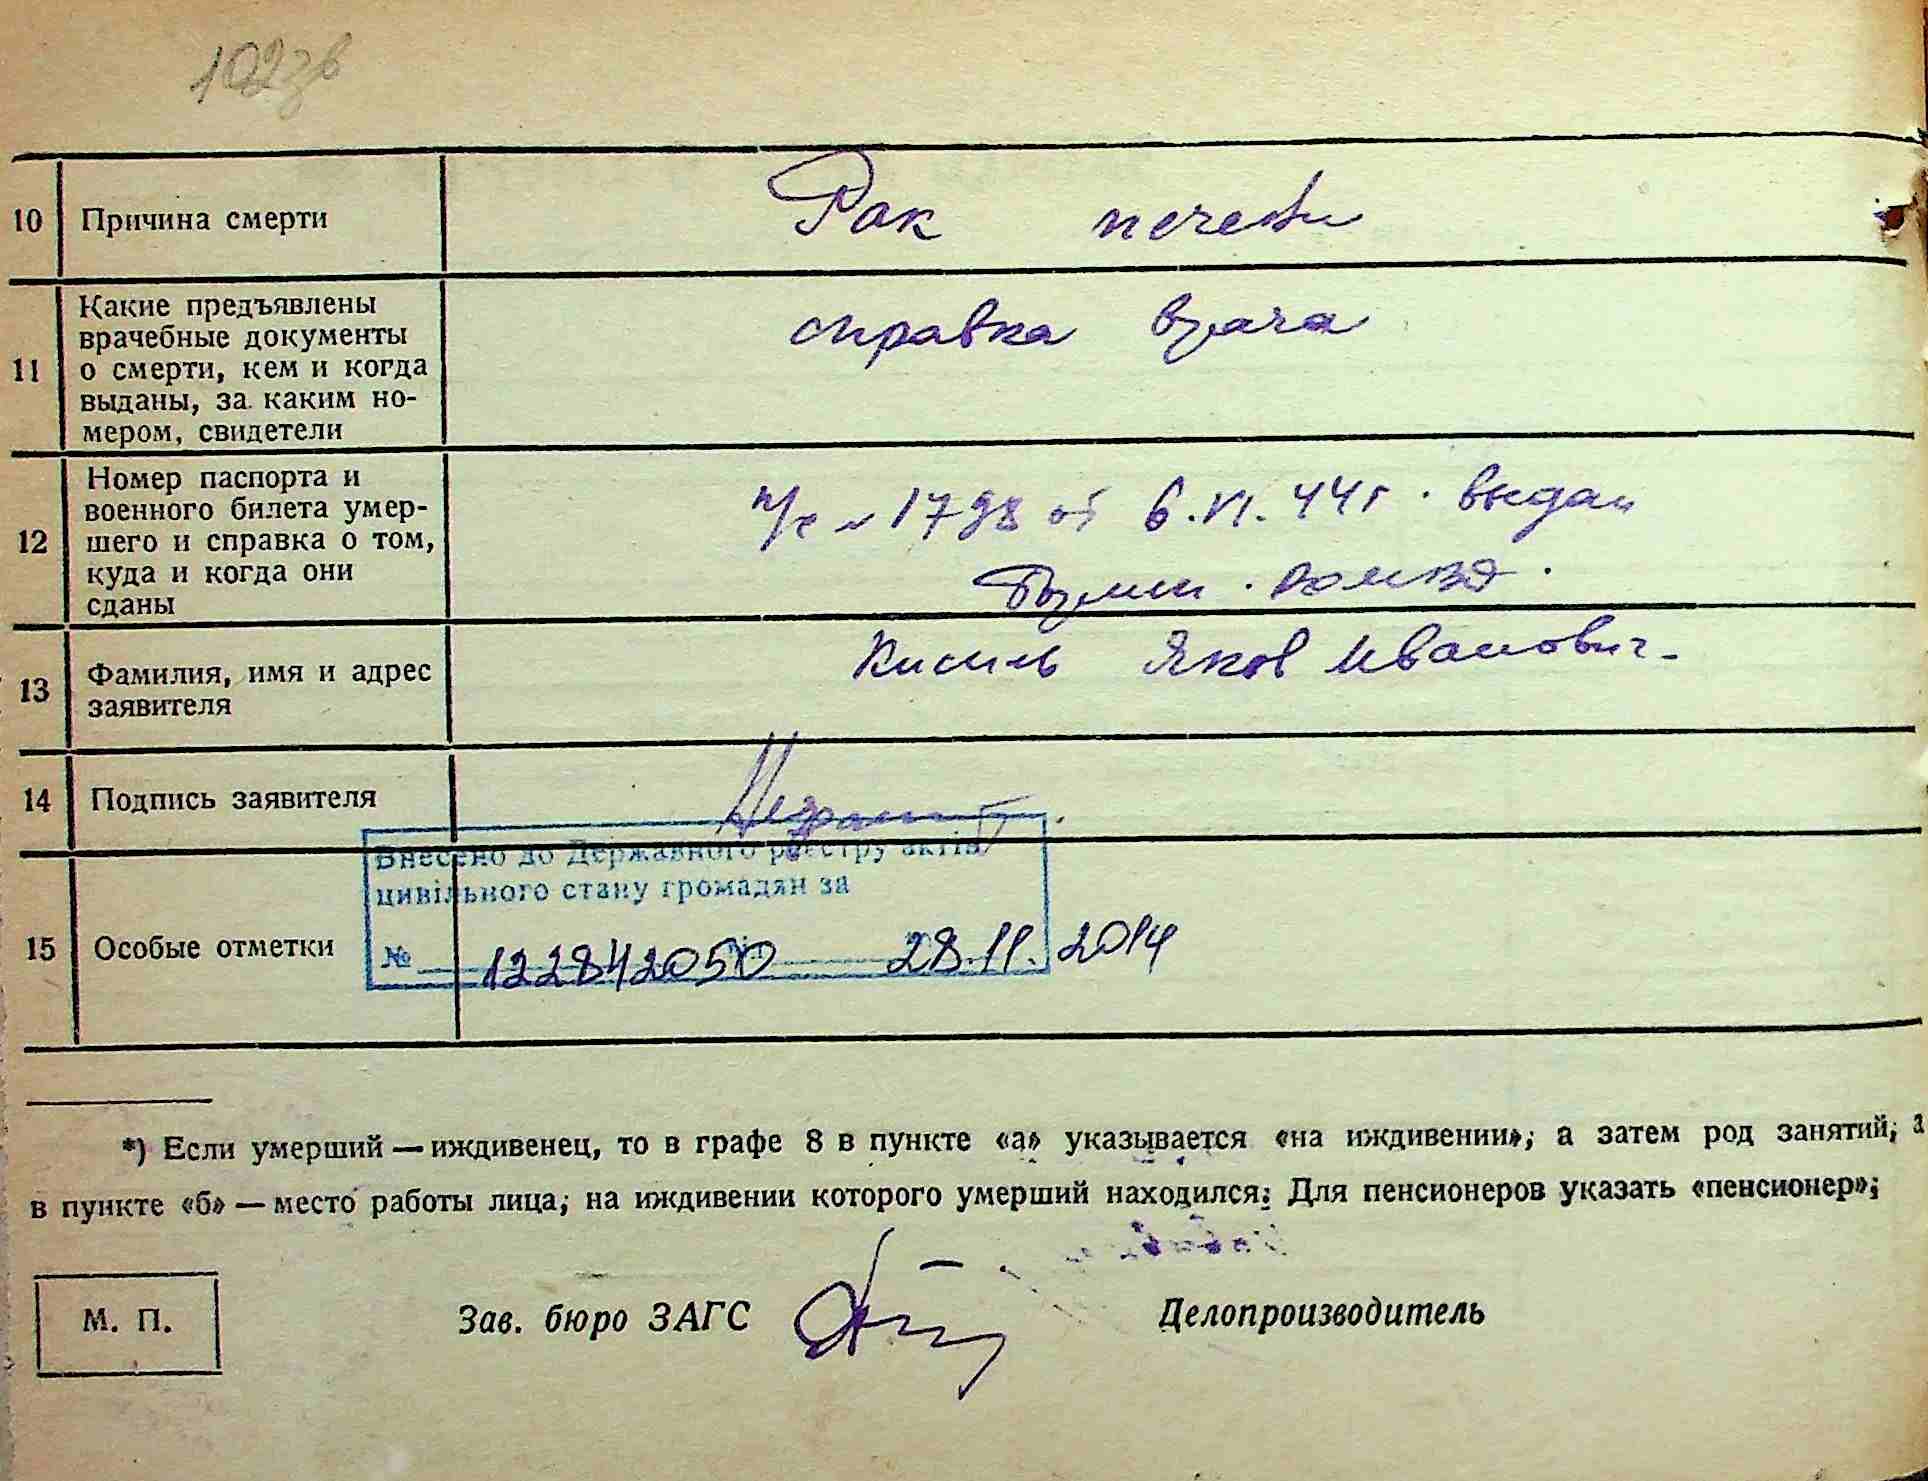 102зв
10 Причина смерти Рак печени
11 Какие предъявлены
врачебные документы
о смерти, кем и когда
выданы, за каким но-
мером, свидетели
справка врача
12 Номер паспорта и
военного билета умер-
шего и справка о том,
куда и когда они
сданы
№ 1798 от 6.VI.44г. выдан
13 Фамилия, имя и адрес
заявителя
Кисиль Яков Иванович
14 Подпись заявителя
15 Особые отметки
Внесено до Державного реєстру актів
цивільного стану громадян за
№ 122842050 28.11.2014
*) Если умерший — иждивенец, то в графе 8 в пункте «а» указывается «на иждивении»; а затем род занятий; а
в пункте «б» — место работы лица; на иждивении которого умерший находился: Для пенсионеров указать «пенсионер»;
М. П. Зав. бюро ЗАГС Делопроизводитель